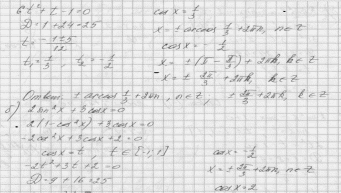 6t² + t - 1 = 0
D = 1 + 24 = 25
t = (-1±5)/12
t₁ = 1/3, t₂ = -1/2
cos x = 1/3
x = ± arccos 1/3 + 2πn, n ∈ z
cos x = -1/2
x = ± (π - π/3) + 2πk, k ∈ z
x = ± 2π/3 + 2πk, k ∈ z
Ответ: ± arccos 1/3 + 2πn, n ∈ z, ± 2π/3 + 2πk, k ∈ z
б) 2 sin² x + 3 cos x = 0
2(1 - cos² x) + 3 cos x = 0
-2 cos² x + 3 cos x + 2 = 0
cos x = t, t ∈ [-1; 1]
-2t² + 3t + 2 = 0
D = 9 + 16 = 25
cos x = -1/2
x = ± 2π/3 + 2πn, n ∈ z
cos x = 2